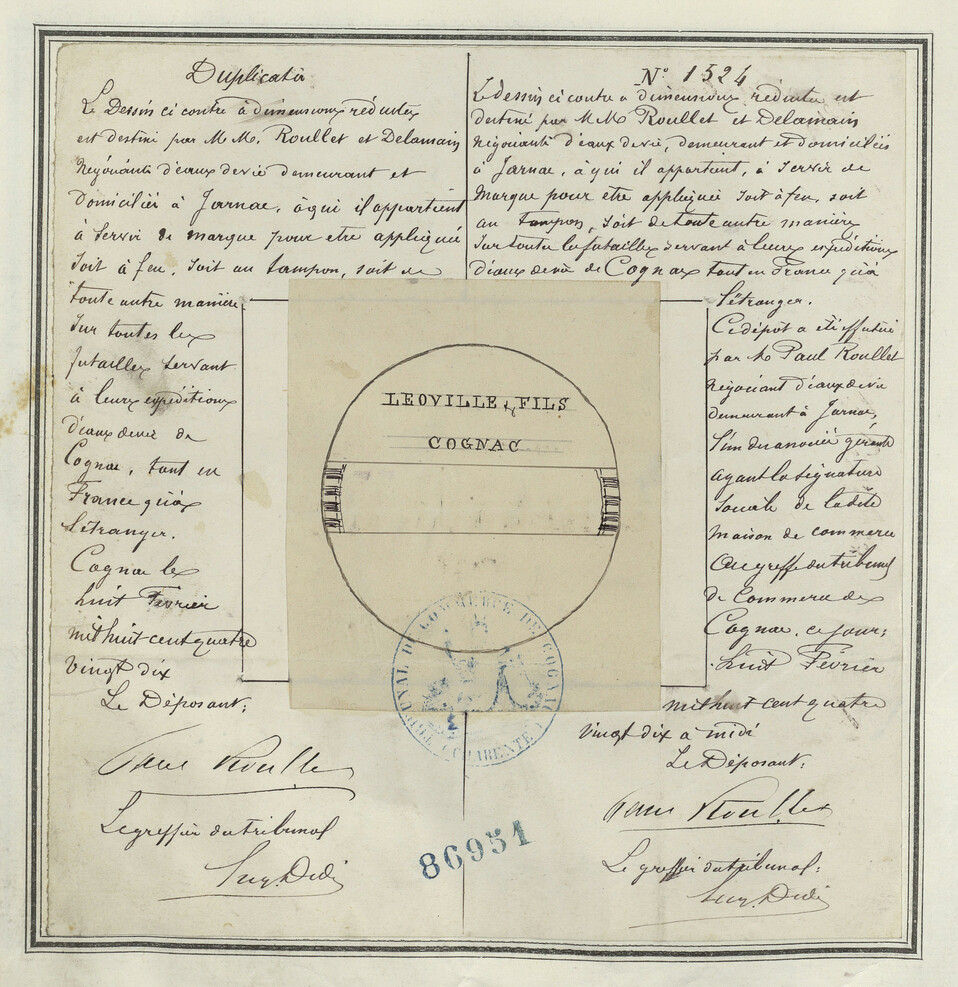 Duplicata
Le Dessin ci contre à dimensions réduites
est destiné par M M. Roullet et Delamain
Négociants d'eaux de vie demeurant et
domiciliés à Jarnac, à qui il appartient
à servir de marque pour etre appliqué
soit à feu, soit au tampon, soit de
toute autre manière
sur toutes les
futailles servant
à leurs expéditions
d'eaux de vie de
Cognac, tant en
France qu'à
l'étranger.
Cognac le
huit Fevrier
mil huit cent quatre
vingt dix
Le Déposant:
Paul Roullet
Le greffier du tribunal
N° 1524
Le dessin ci contre a dimensions réduites est
destiné par M M Roullet et Delamain
négociants d'eaux de vie, demeurant et domiciliés
à Jarnac, à qui il appartient, à servir de
marque pour être appliqué soit à feu, soit
au tampon, soit de toute autre manière
sur toutes les futailles servant à leurs expéditions
d'eaux de vie de Cognac tant en France qu'à
l'étranger.
Ce dépôt a été effectué
par M Paul Roullet
négociant d'eaux de vie
demeurant à Jarnac,
l'un des associés gérants
ayant la signature
sociale de la dite
maison de commerce
au greffe du tribunal
de Commerce de
Cognac, ce jour:
huit Février
mil huit cent quatre
vingt dix a midi
Le Déposant:
Paul Roullet
Le greffier du tribunal:
LEOVILLE & FILS
COGNAC
TRIBUNAL DE COMMERCE DE COGNAC
(CHARENTE)
86951